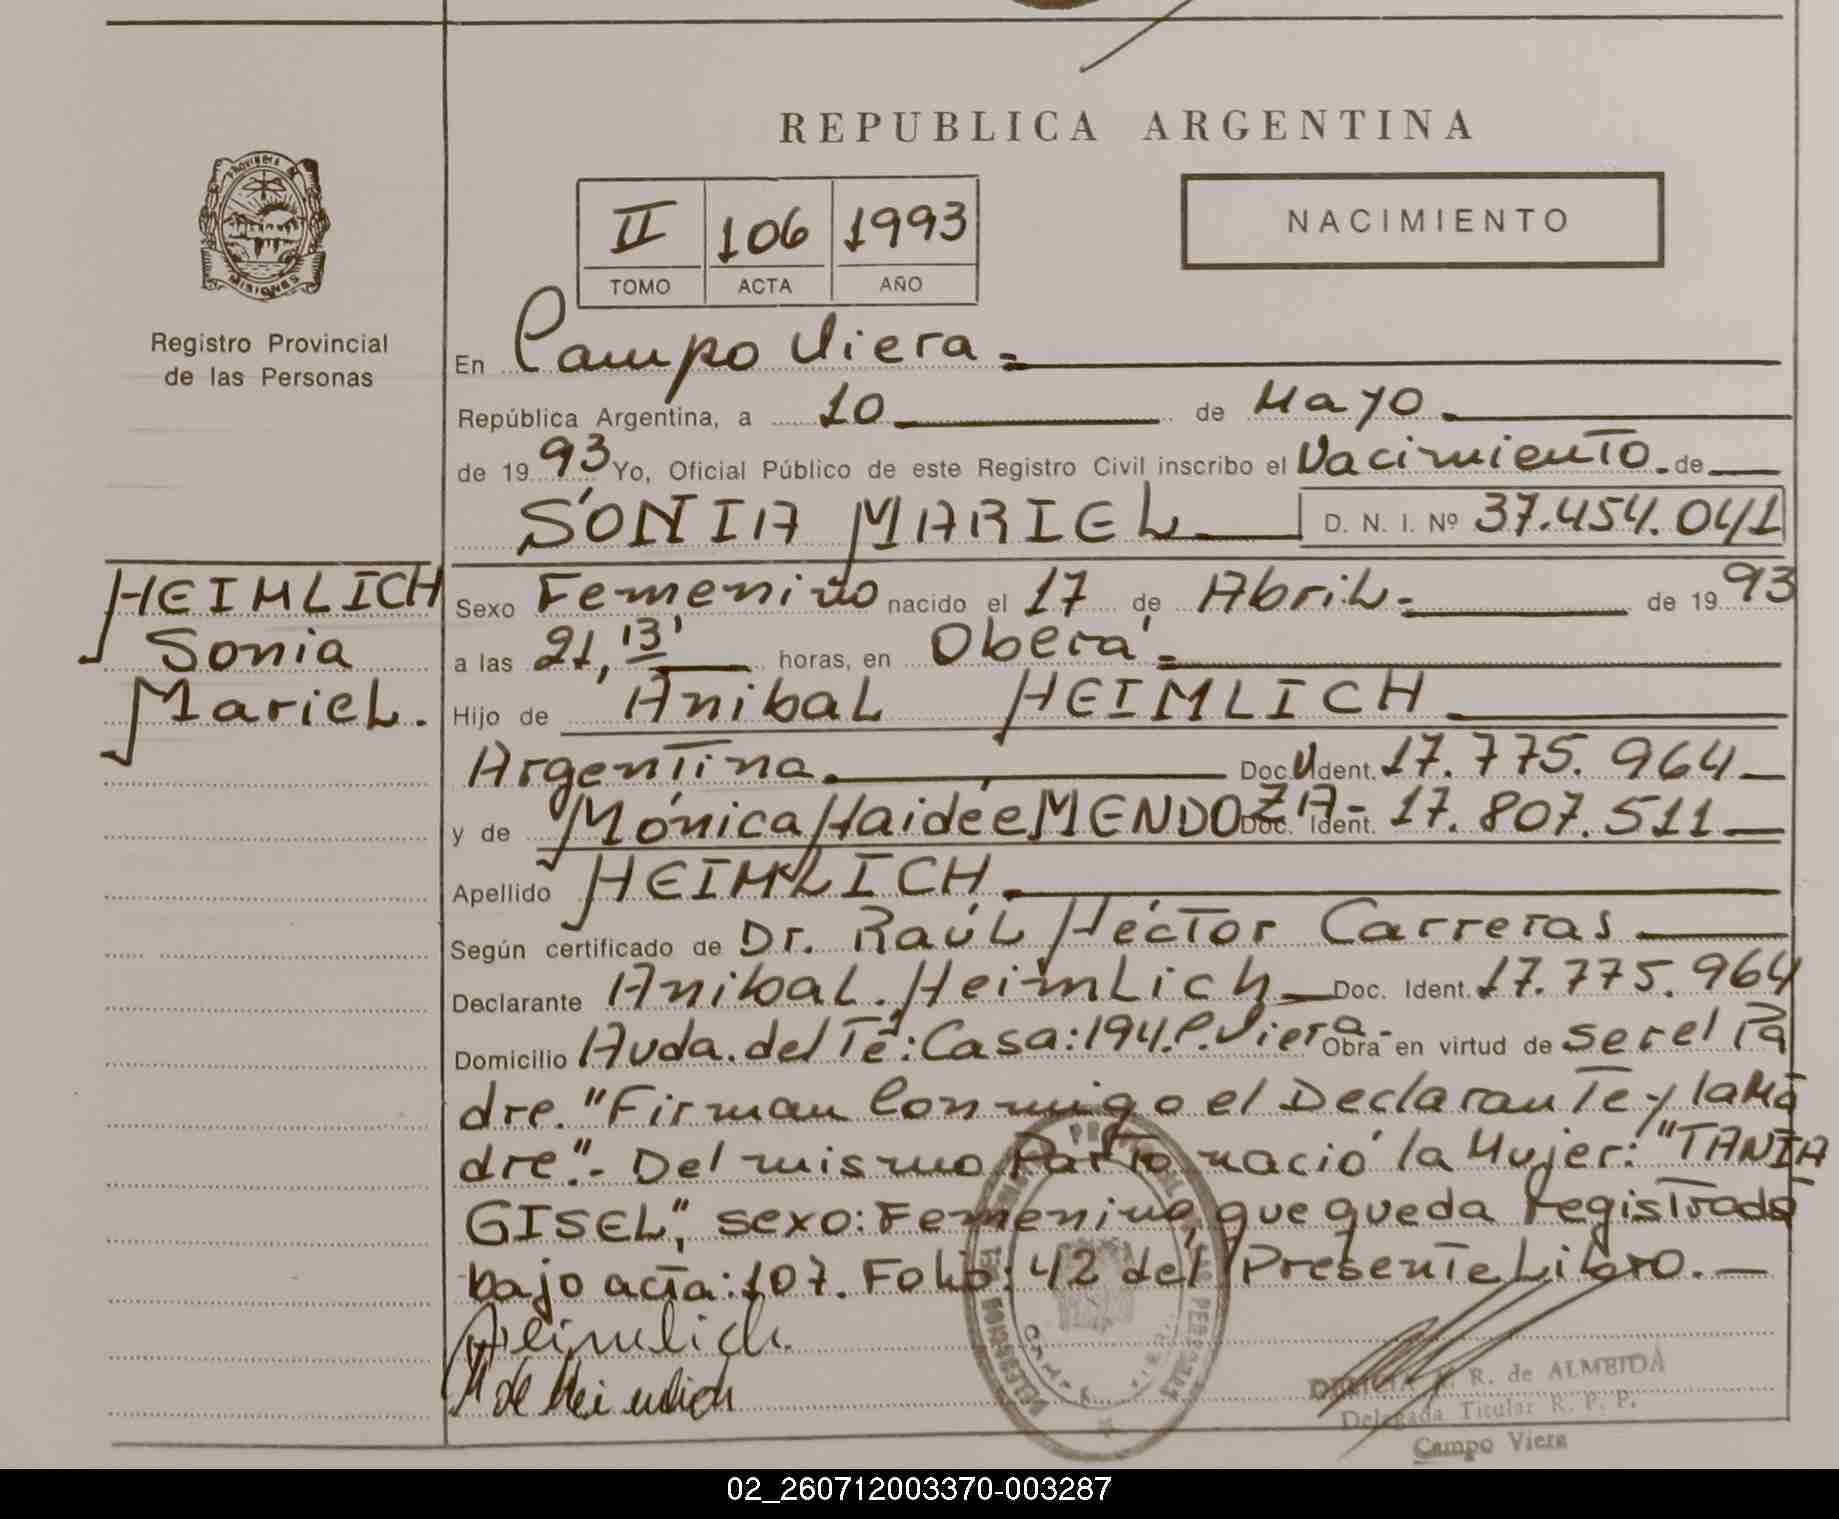 REPUBLICA ARGENTINA
II 106 1993
TOMO ACTA AÑO
NACIMIENTO
PROVINCIA DE
MISIONES
Registro Provincial
de las Personas
En Campo Viera.=
República Argentina, a 10 de Mayo.
de 1993 Yo, Oficial Público de este Registro Civil inscribo el Nacimiento. de
SONIA MARIEL D. N. I. Nº 37.454.041
HEIMLICH
Sonia
Mariel.
Sexo Femenino nacido el 17 de Abril.- de 1993
a las 21,13' horas, en Oberá.=
Hijo de Anibal HEIMLICH
Argentina. Doc. U Ident. 17.775.964
y de Mónica Haidée MENDOZA- Doc. Ident. 17.807.511
Apellido HEIMLICH.
Según certificado de Dr. Raúl Héctor Carreras
Declarante Anibal. Heimlich Doc. Ident. 17.775.964
Domicilio Avda. del Té: Casa: 194. C. Viera- Obra en virtud de ser el Pa
dre. "Firman Conmigo el Declarante y la Ma
dre".- Del mismo Parto nació la Mujer: "TANIA
GISEL", sexo: Femenino, que queda registrada
bajo acta: 107. Folio: 42 del Presente Libro.
Heimlich.
M de Heimlich
R. de ALMEIDA
Delegada Titular R. P. P.
Campo Viera
02_260712003370-003287